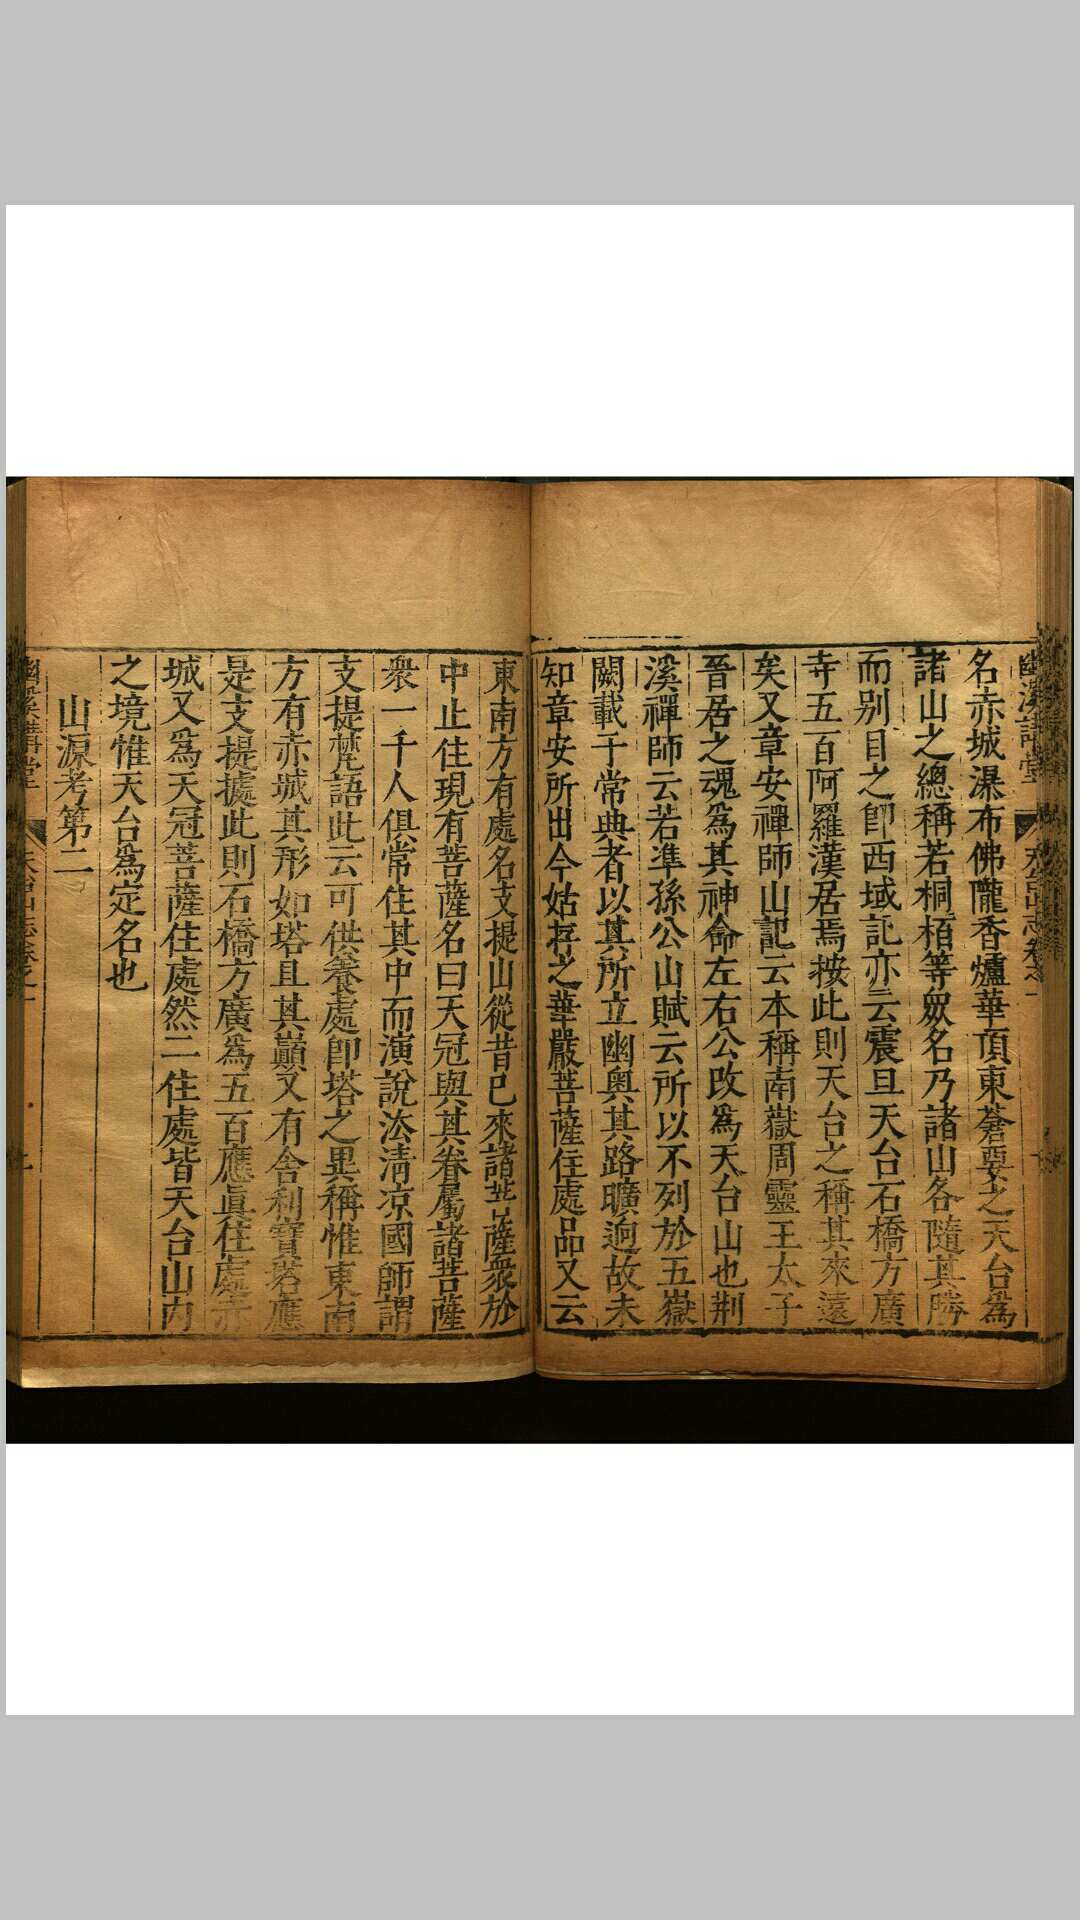 幽溪講堂 天台山志卷之一
名赤城瀑布佛隴香爐華頂東蒼要之天台為
諸山之總稱若桐栢等眾名乃諸山各隨其勝
而别目之即西域記亦云震旦天台石橋方廣
寺五百阿羅漢居焉按此則天台之稱其來遠
矣又章安禪師山記云本稱南嶽周靈王太子
晉居之魂為其神命左右公改為天台山也荆
溪禪師云若準孫公山賦云所以不列於五嶽
闕載于常典者以其所立幽奥其路曠逈故未
知章安所出今姑存之華嚴菩薩住處品又云
東南方有處名支提山從昔已來諸菩薩衆於
中止住現有菩薩名曰天冠與其眷屬諸菩薩
衆一千人俱常住其中而演說法淸凉國師謂
支提梵語此云可供養處卽塔之異稱惟東南
方有赤城其形如塔且其巔又有舍利寶塔應
是支提據此則石橋方廣為五百應眞住處赤
城又為天冠菩薩住處然二住處皆天台山内
之境惟天台為定名也
山源考第二
幽溪講堂